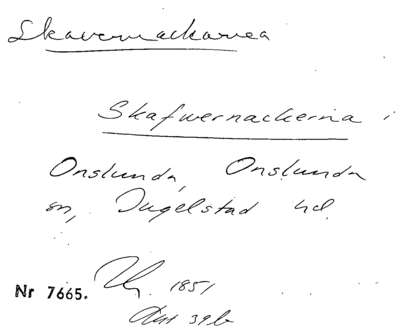 Skavernackarna
Skafwernackerna i
Onslunda, Onslunda
sn, Ingelstad hd.
Nr 7665. 1851
Akt 39b